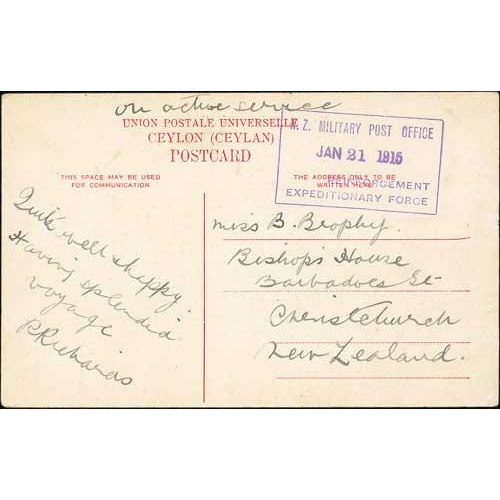 on active service
UNION POSTALE UNIVERSELLE
CEYLON (CEYLAN)
POSTCARD
N.Z. MILITARY POST OFFICE
JAN 21 1915
REINFORCEMENT
EXPEDITIONARY FORCE
THIS SPACE MAY BE USED
FOR COMMUNICATION
THE ADDRESS ONLY TO BE
WRITTEN HERE
Quite well & happy.
Having splendid
voyage
P Richards
Miss B. Brophy.
Bishops House
Barbadoes St
Christchurch
New Zealand.